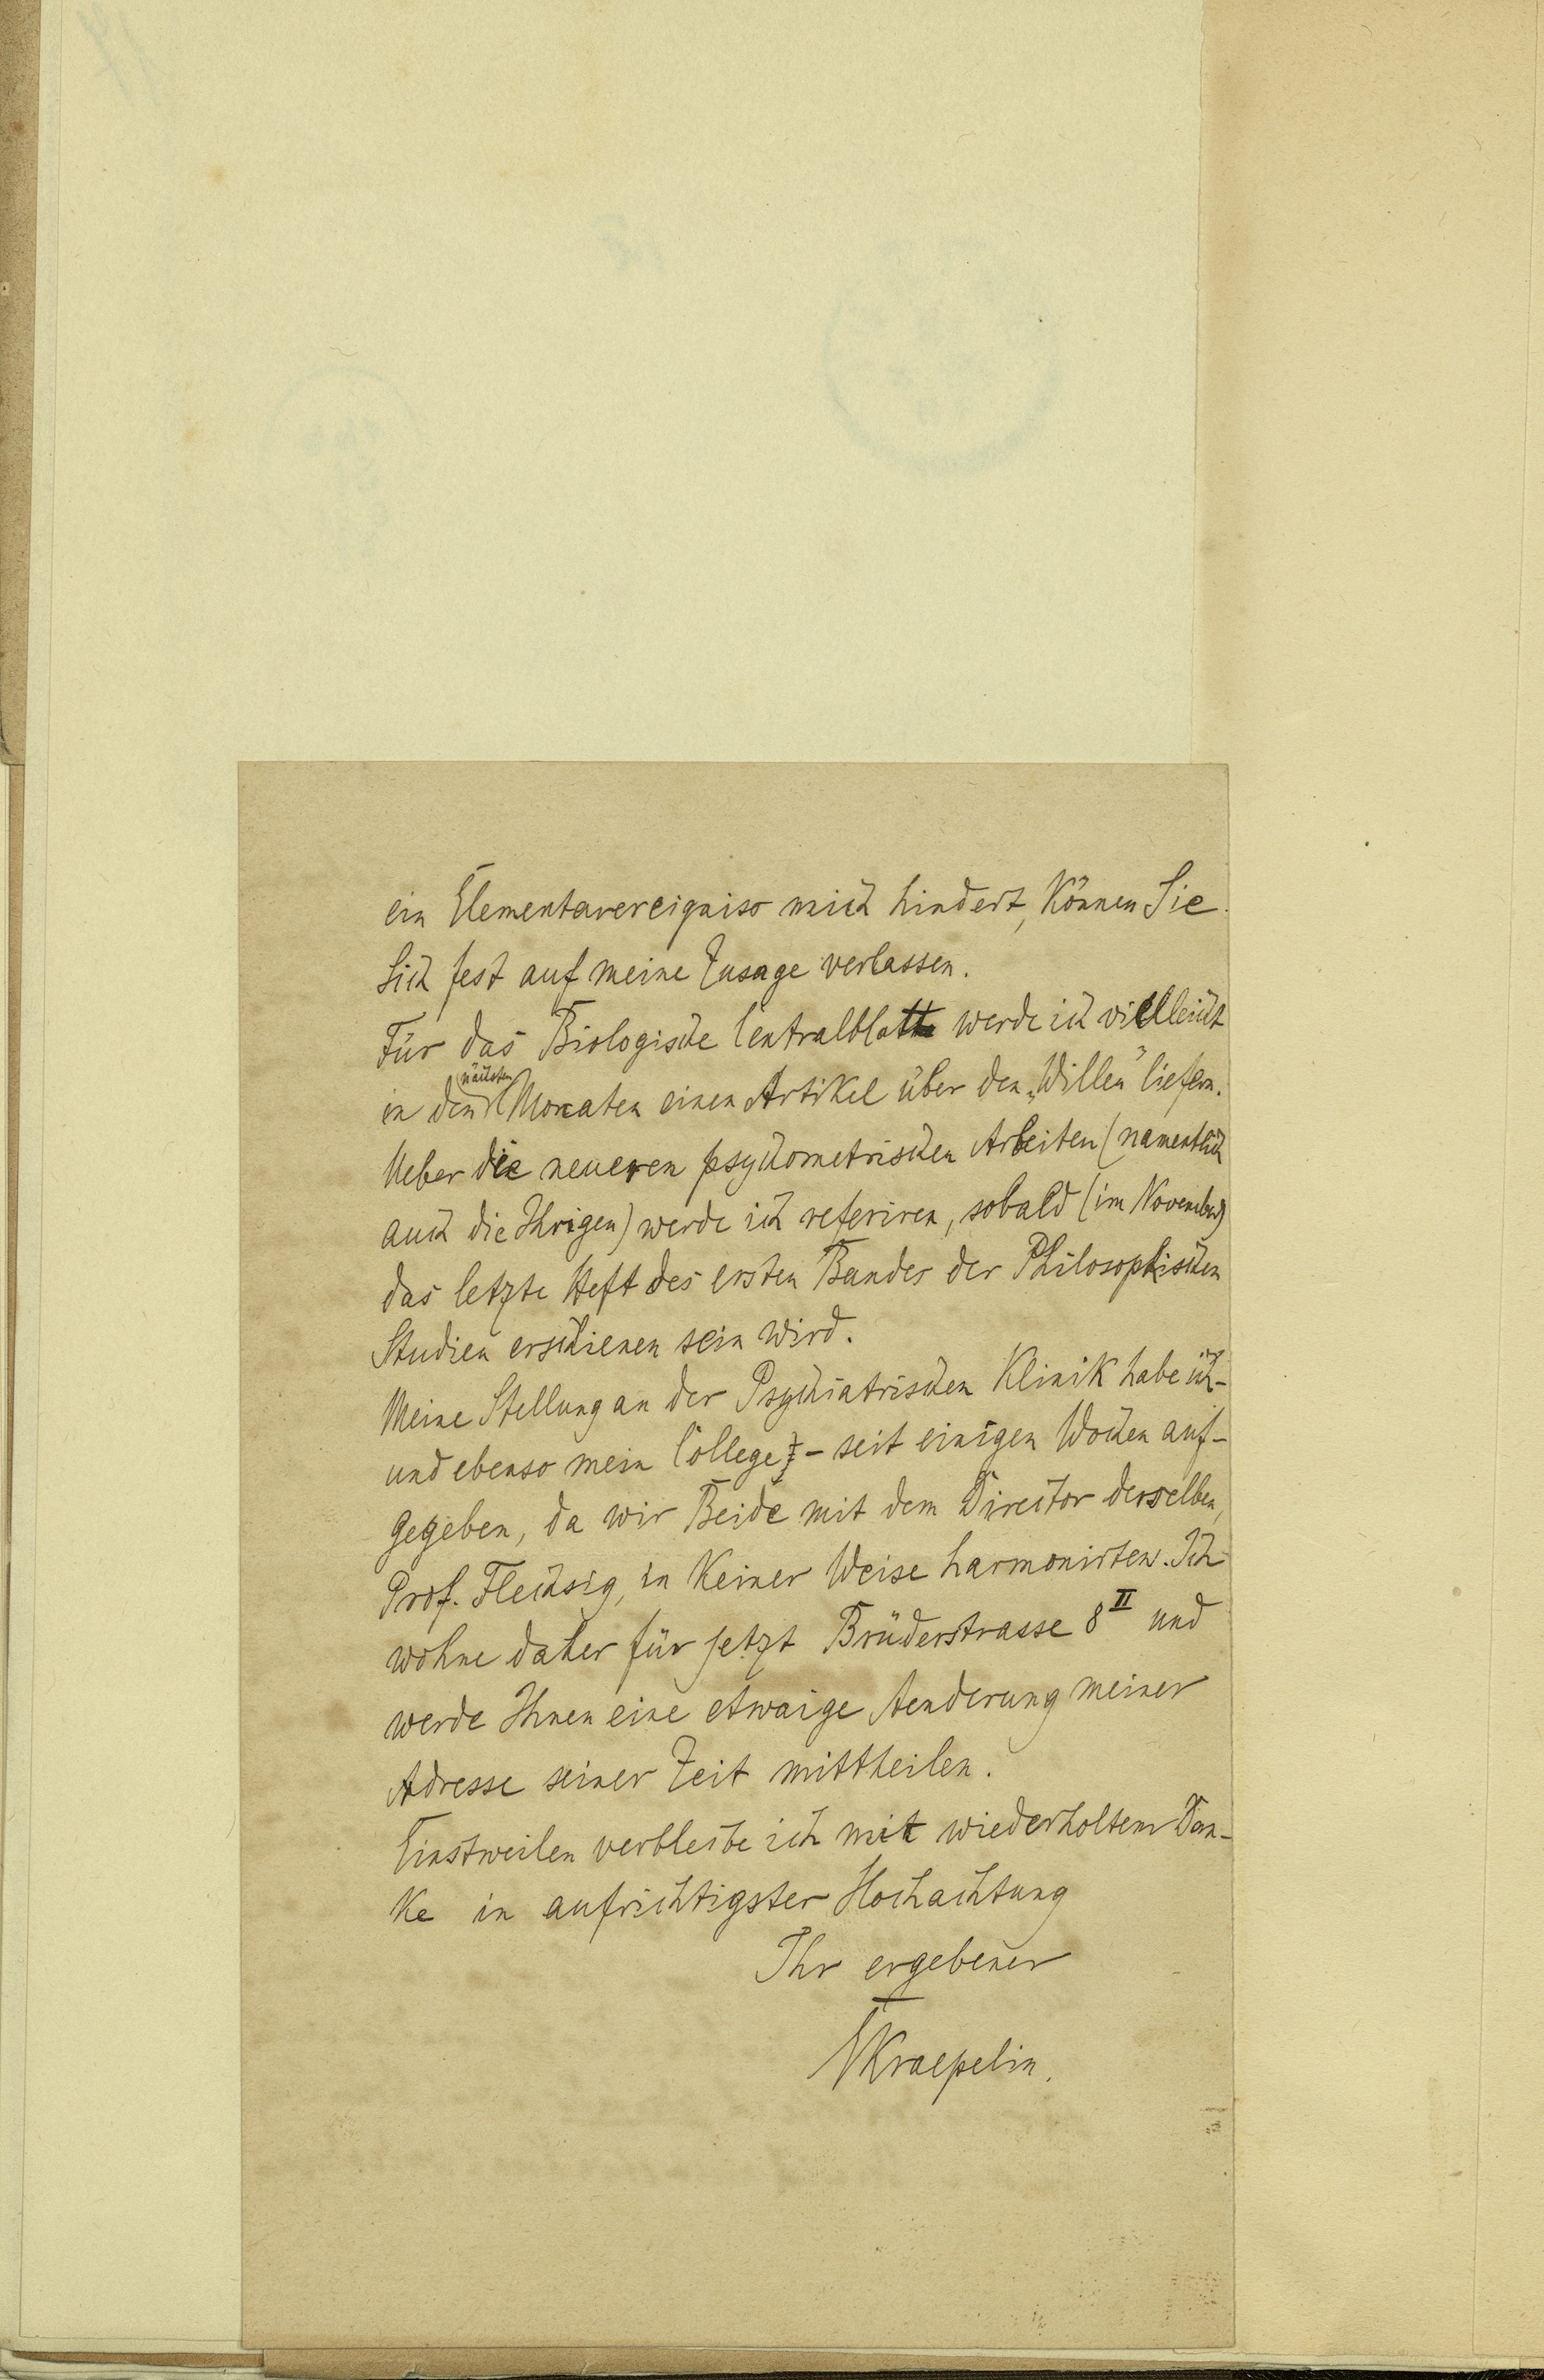 ein Elementarereigniss mich hindert, können Sie
Sich fest auf meine Zusage verlassen.
Für das Biologische Centralblatt werde ich vielleicht
in den nächsten Monaten einen Artikel über den „Willen" liefern.
Ueber die neueren psychometrischen Arbeiten (namentlich
auch die Ihrigen) werde ich referiren, sobald (im November)
das letzte Heft des ersten Bandes der Philosophischen
Studien erschienen sein wird.
Meine Stellung an der Psychiatrischen Klinik habe ich -
und ebenso mein College - seit einigen Wochen auf-
gegeben, da wir Beide mit dem Director derselben,
Prof. Flechsig, in keiner Weise harmonirten. Ich
wohne daher für jetzt Brüderstrasse 8 II und
werde Ihnen eine etwaige Aenderung meiner
Adresse seiner Zeit mittheilen.
Einstweilen verbleibe ich mit wiederholtem Dan-
ke in aufrichtigster Hochachtung
Ihr ergebener
EKraepelin.